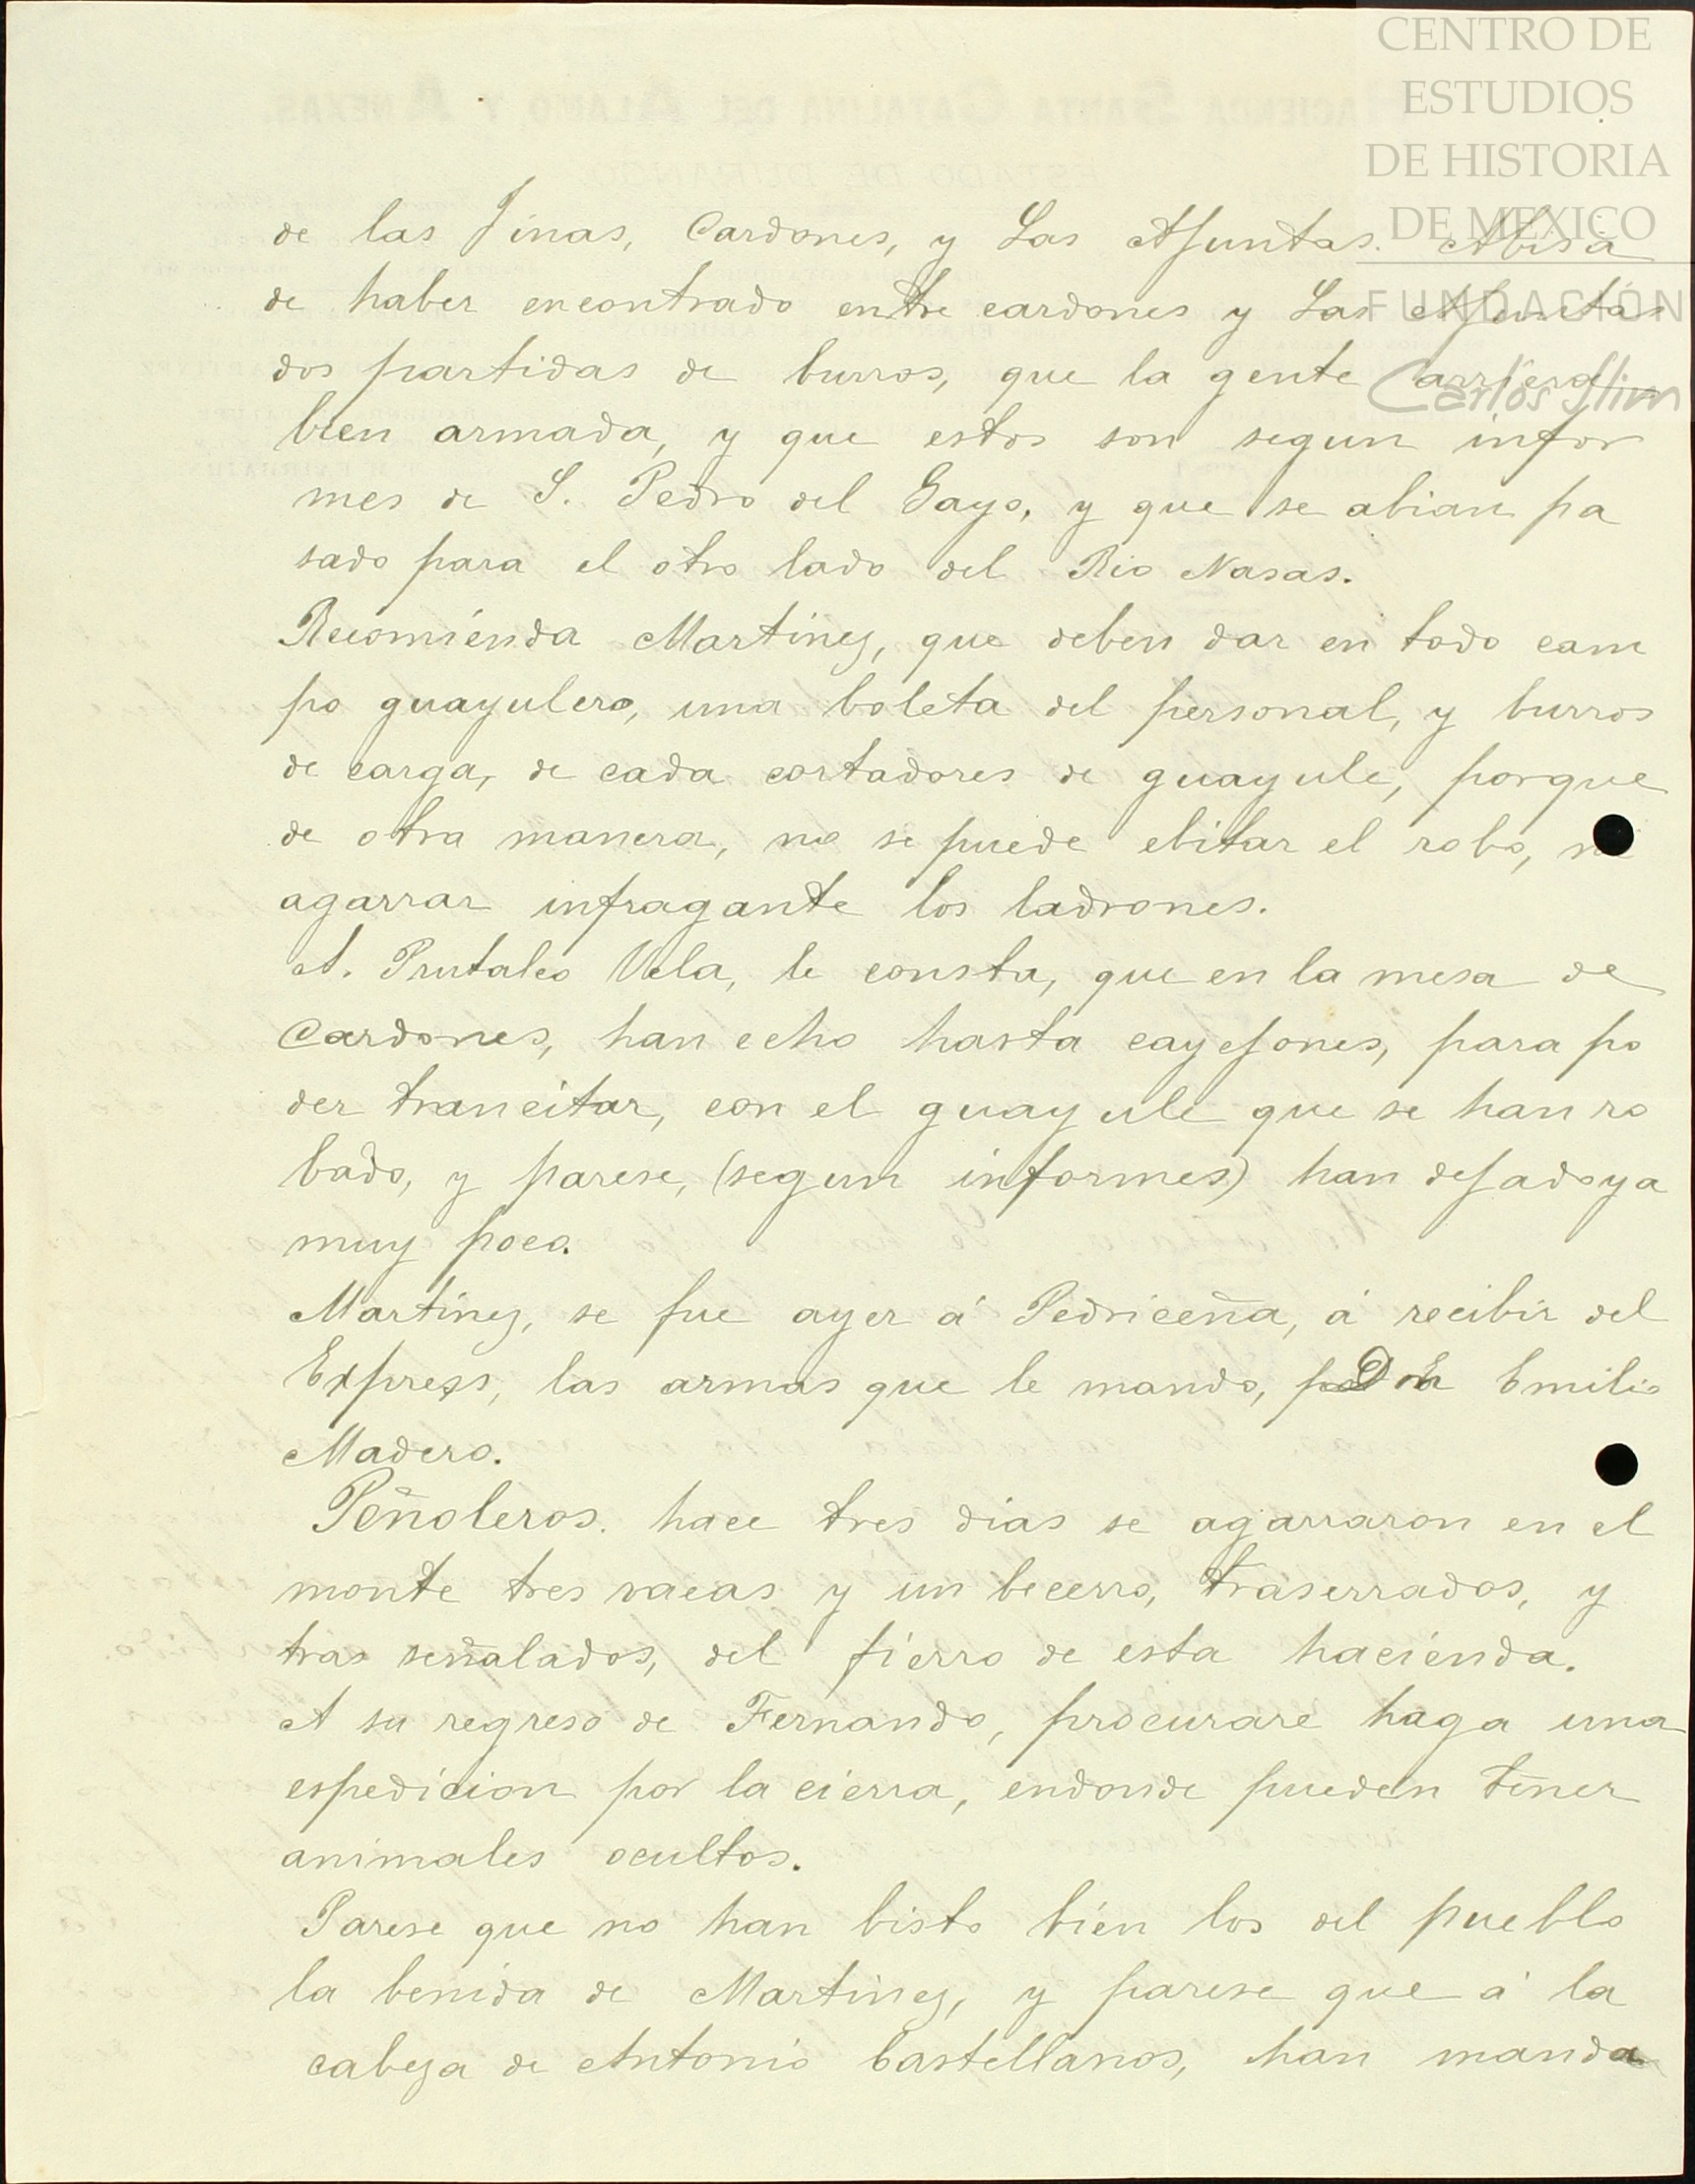 CENTRO DE
ESTUDIOS
DE HISTORIA
DE MEXICO
FUNDACIÓN
Carlos Slim
HACIENDA SANTA CATALINA DEL ALAMO Y ANEXAS.
ESTADO DE DURANGO
de las Tinas, Cardones, y Las Ajuntas. Abisa
de haber encontrado entre cardones y Las Ajuntas
dos partidas de burros, que la gente arriera
bien armada, y que estos son segun infor
mes de S. Pedro del Gayo, y que se abian pa
sado para el otro lado del Rio Nasas.
Recomienda Martinez, que deben dar en todo cam
po guayulero, una boleta del personal, y burros
de carga, de cada cortadores de guayule, porque
de otra manera, no se puede ebitar el robo, ni
agarrar infragante los ladrones.
A. Vela, le consta, que en la mesa de
Cardones, han echo hasta cayejones, para po
der trancitar, con el guayule que se han ro
bado, y parese, (segun informes) han dejado ya
muy poco.
Martinez, se fue ayer á Pedriceña, á recibir del
Express, las armas que le mando, Don Emilio
Madero.
Peñoleros. hace tres dias se agarraron en el
monte tres vacas y un becerro, traserrados, y
tras señalados, del fierro de esta hacienda.
A su regreso de Fernando, procurare haga una
espedicion por la cierra, endonde pueden tener
animales ocultos.
Parese que no han bisto bien los del pueblo
la benida de Martinez, y parese que á la
cabeza de Antonio Castellanos, han manda